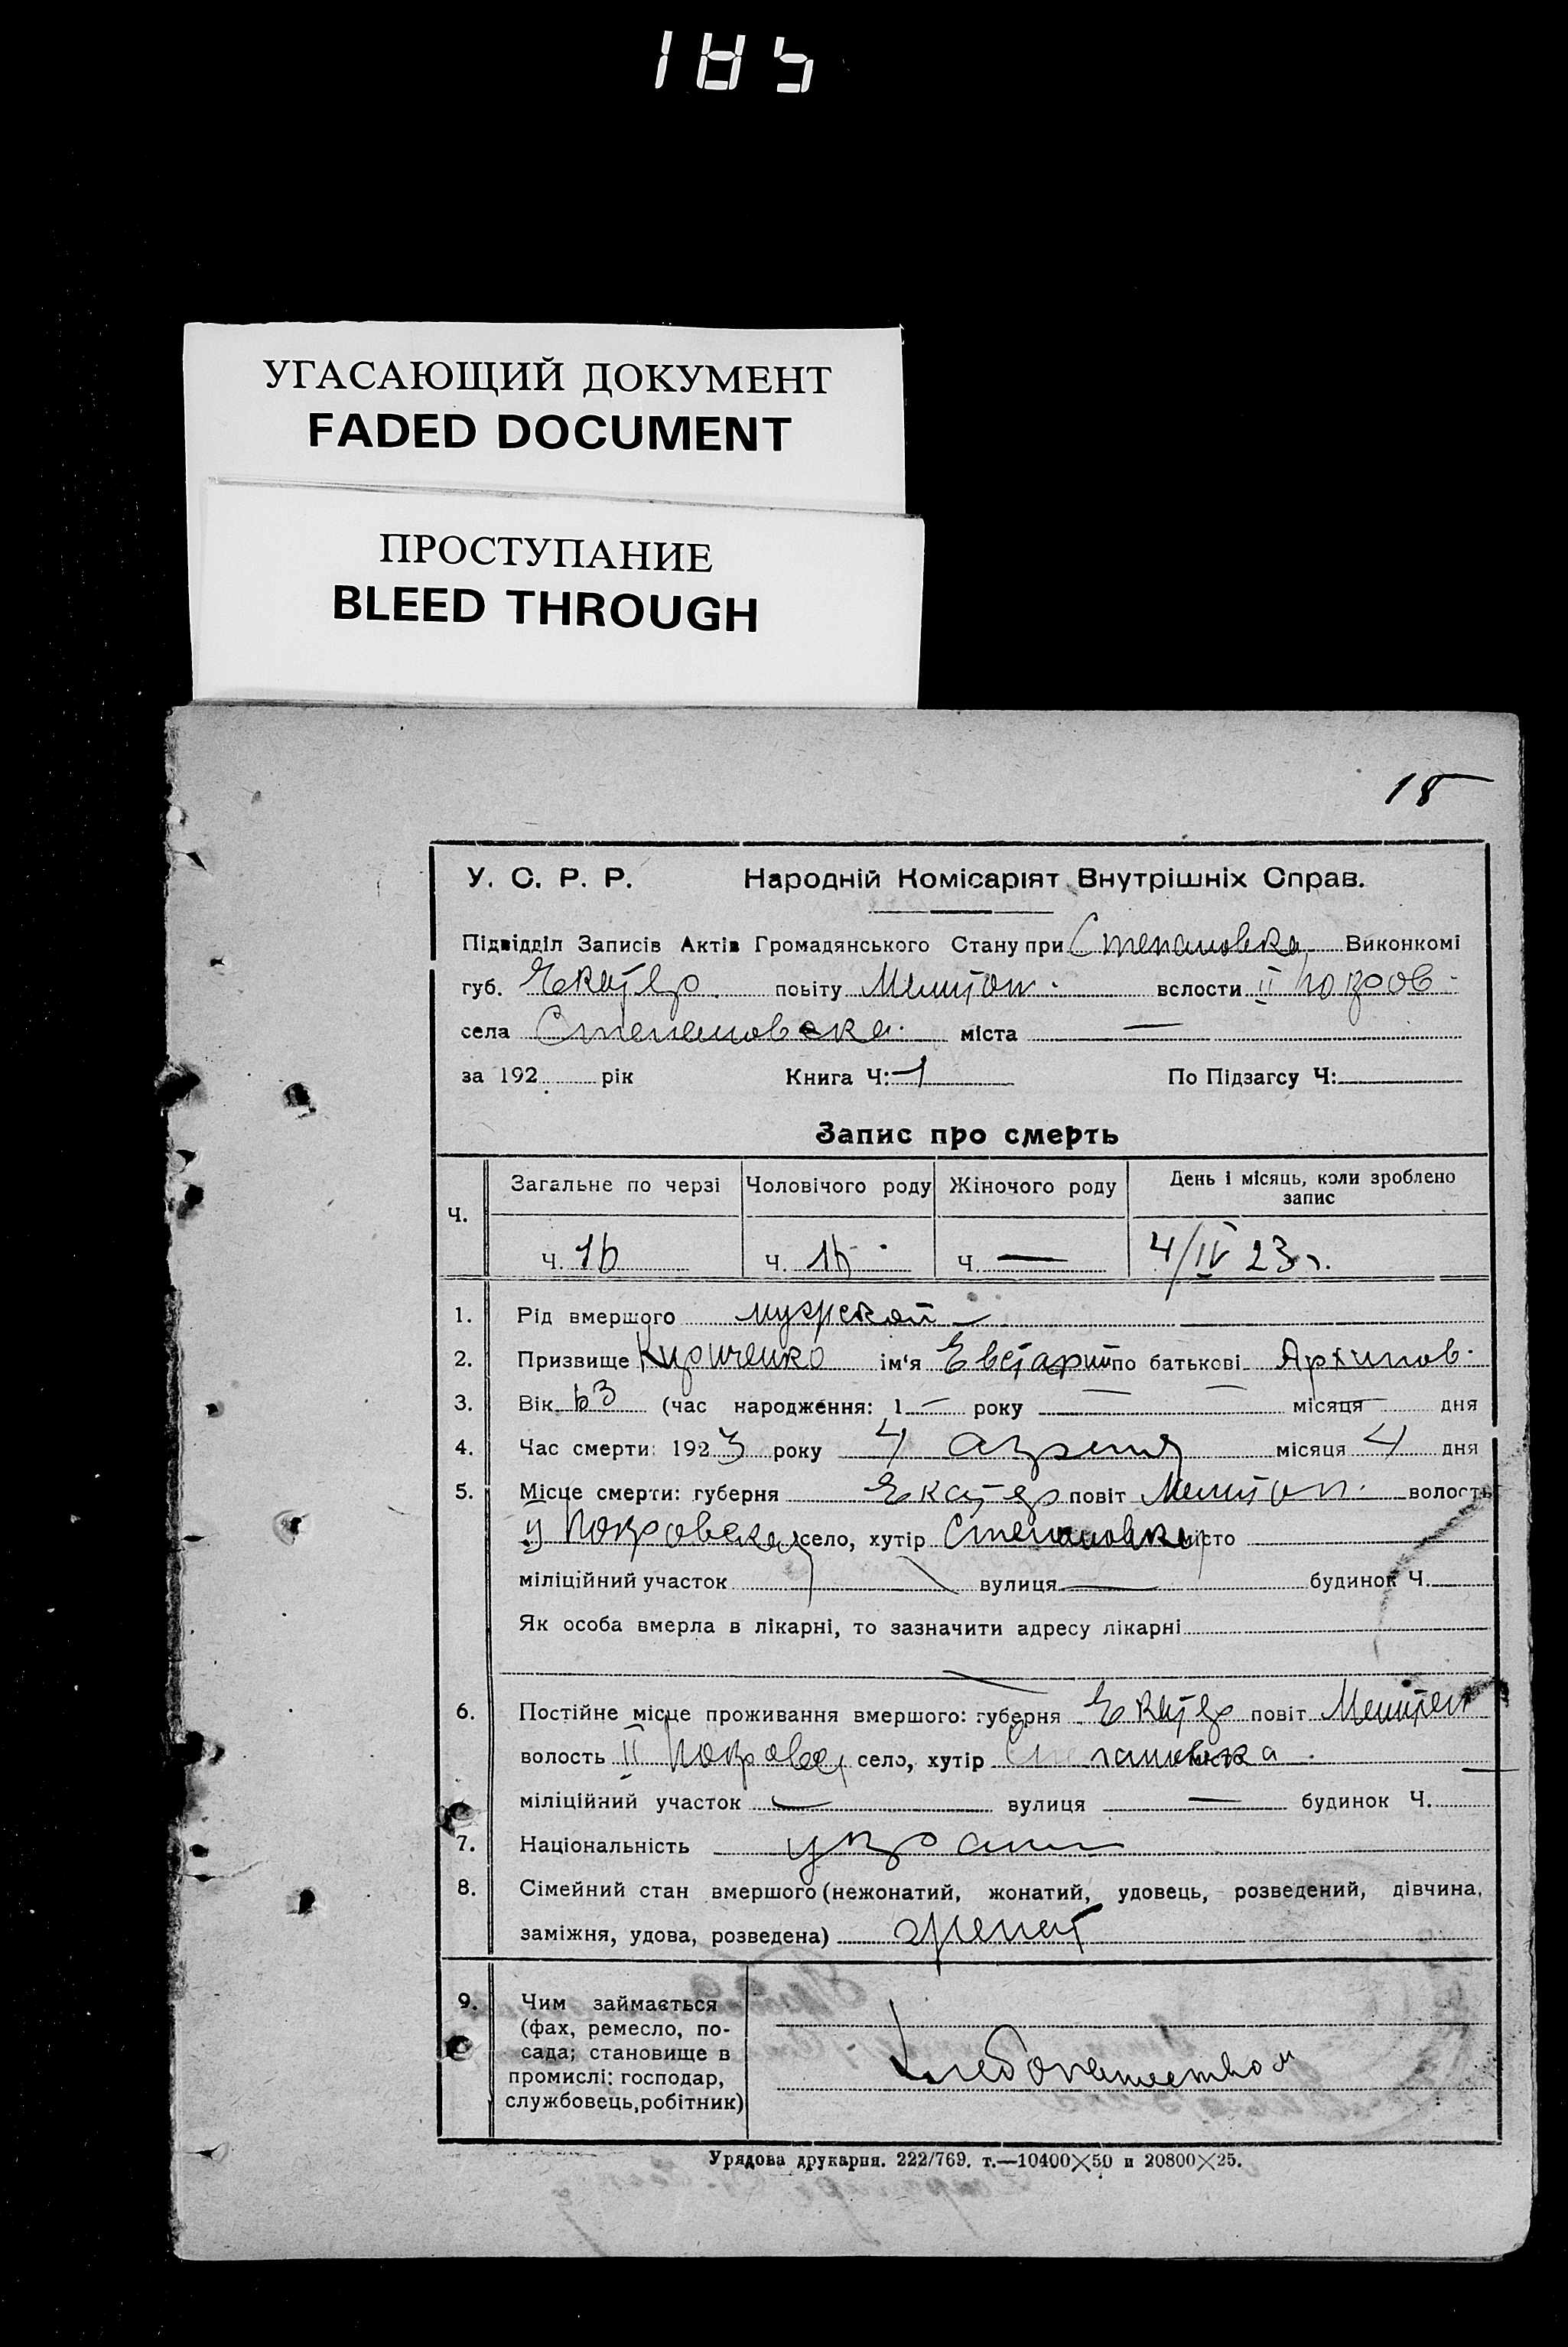 185
УГАСАЮЩИЙ ДОКУМЕНТ
FADED DOCUMENT
ПРОСТУПАНИЕ
BLEED THROUGH
18
У. С. Р. Р. Народній Комісаріят Внутрішніх Справ.
Підвідділ Записів Актів Громадянського Стану при Степановка Виконкомі
губ. Екатер. повіту Мелитоп. вслости II Покров
села Степановека. міста —
за 192 рік Книга Ч: 1 По Підзагсу Ч:
Запис про смерть
Ч. Загальне по черзі Чоловічого роду Жіночого роду День і місяць, коли зроблено запис
Ч. 16 Ч. Ч. — 4/IV 23 г.
1. Рід вмершого мужской
2. Призвище Кириченко ім'я Евстафий по батькові Архипов.
3. Вік 63 (час народження: 1 — року — — місяця — дня
4. Час смерти: 1923 року 4 апреля місяця 4 дня
5. Місце смерти: губерня Екатер повіт Мелитоп. волость
II Покровска село, хутір Степановка місто
міліційний участок вулиця — будинок Ч.
Як особа вмерла в лікарні, то зазначити адресу лікарні
—
6. Постійне місце проживання вмершого: губерня Екатер повіт Мелитоп
волость II Покровс село, хутір Степановка
міліційний участок — вулиця — будинок Ч.
7. Національність украин
8. Сімейний стан вмершого (нежонатий, жонатий, удовець, розведений, дівчина,
заміжня, удова, розведена) женат
9. Чим займається
(фах, ремесло, по-
сада; становище в
промислі: господар,
службовець, робітник)
Хлебопашеством
Урядова друкарня. 222/769. т.—10400×50 и 20800×25.